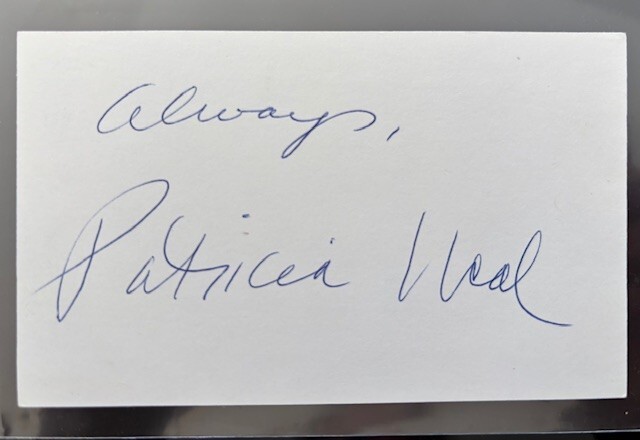 Always,
Patricia Neal